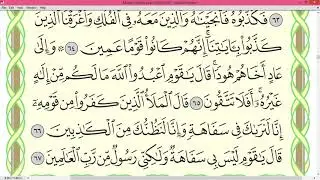 ٦٣ فَكَذَّبُوهُ فَأَنجَيْنَٰهُ وَٱلَّذِينَ مَعَهُۥ فِى ٱلْفُلْكِ وَأَغْرَقْنَا ٱلَّذِينَ
كَذَّبُوا۟ بِـَٔايَٰتِنَآ ۚ إِنَّهُمْ كَانُوا۟ قَوْمًا عَمِينَ ٦٤ ۞ وَإِلَىٰ
عَادٍ أَخَاهُمْ هُودًا ۗ قَالَ يَٰقَوْمِ ٱعْبُدُوا۟ ٱللَّهَ مَا لَكُم مِّنْ إِلَٰهٍ
غَيْرُهُۥٓ ۚ أَفَلَا تَتَّقُونَ ٦٥ قَالَ ٱلْمَلَأُ ٱلَّذِينَ كَفَرُوا۟ مِن قَوْمِهِۦٓ
إِنَّا لَنَرَىٰكَ فِى سَفَاهَةٍ وَإِنَّا لَنَظُنُّكَ مِنَ ٱلْكَٰذِبِينَ ٦٦
قَالَ يَٰقَوْمِ لَيْسَ بِى سَفَاهَةٌ وَلَٰكِنِّى رَسُولٌ مِّن رَّبِّ ٱلْعَٰلَمِينَ ٦٧